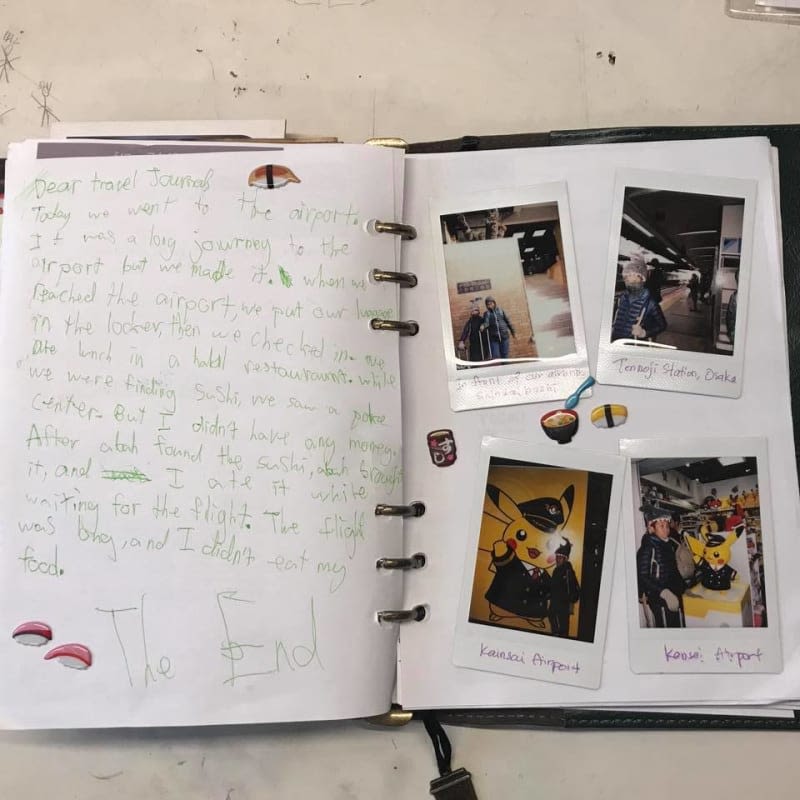 Dear travel Journals
Today we went to the airport.
It was a long journey to the
airport but we made it. when we
reached the airport, we put our luggage
in the locker, then we checked in. we
ate lunch in a halal restaurant. while
we were finding sushi, we saw a poke
center. But I didn't have any money.
After abah found the sushi, abah brought
it, and I ate it while
waiting for the flight. The flight
was long, and I didn't eat my
food.
The End
in front of our airbnb,
Tennoji Station, Osaka
Kainsai Airport
Kansai Airport